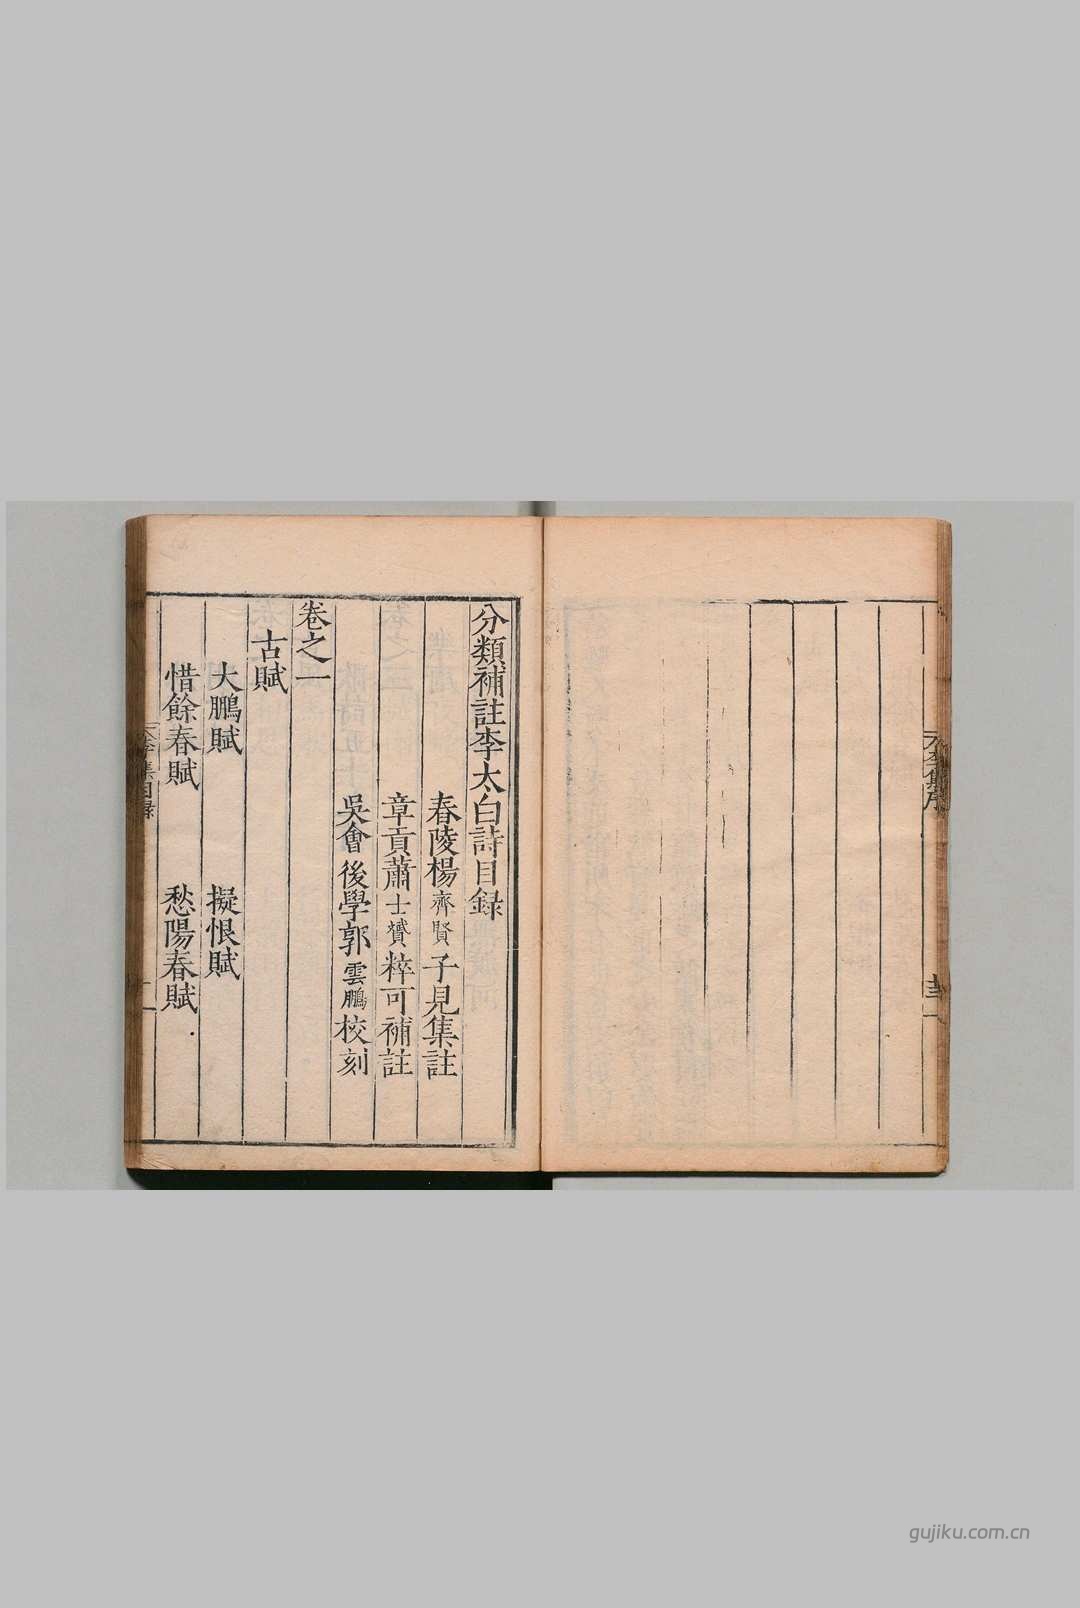 分類補註李太白詩目録
舂陵楊齊賢子見集註
章貢蕭士贇粹可補註
吳會後學郭雲鵬校刻
卷之一
古賦
大鵬賦
擬恨賦
惜餘春賦
愁陽春賦
李集目録
gujiku.com.cn